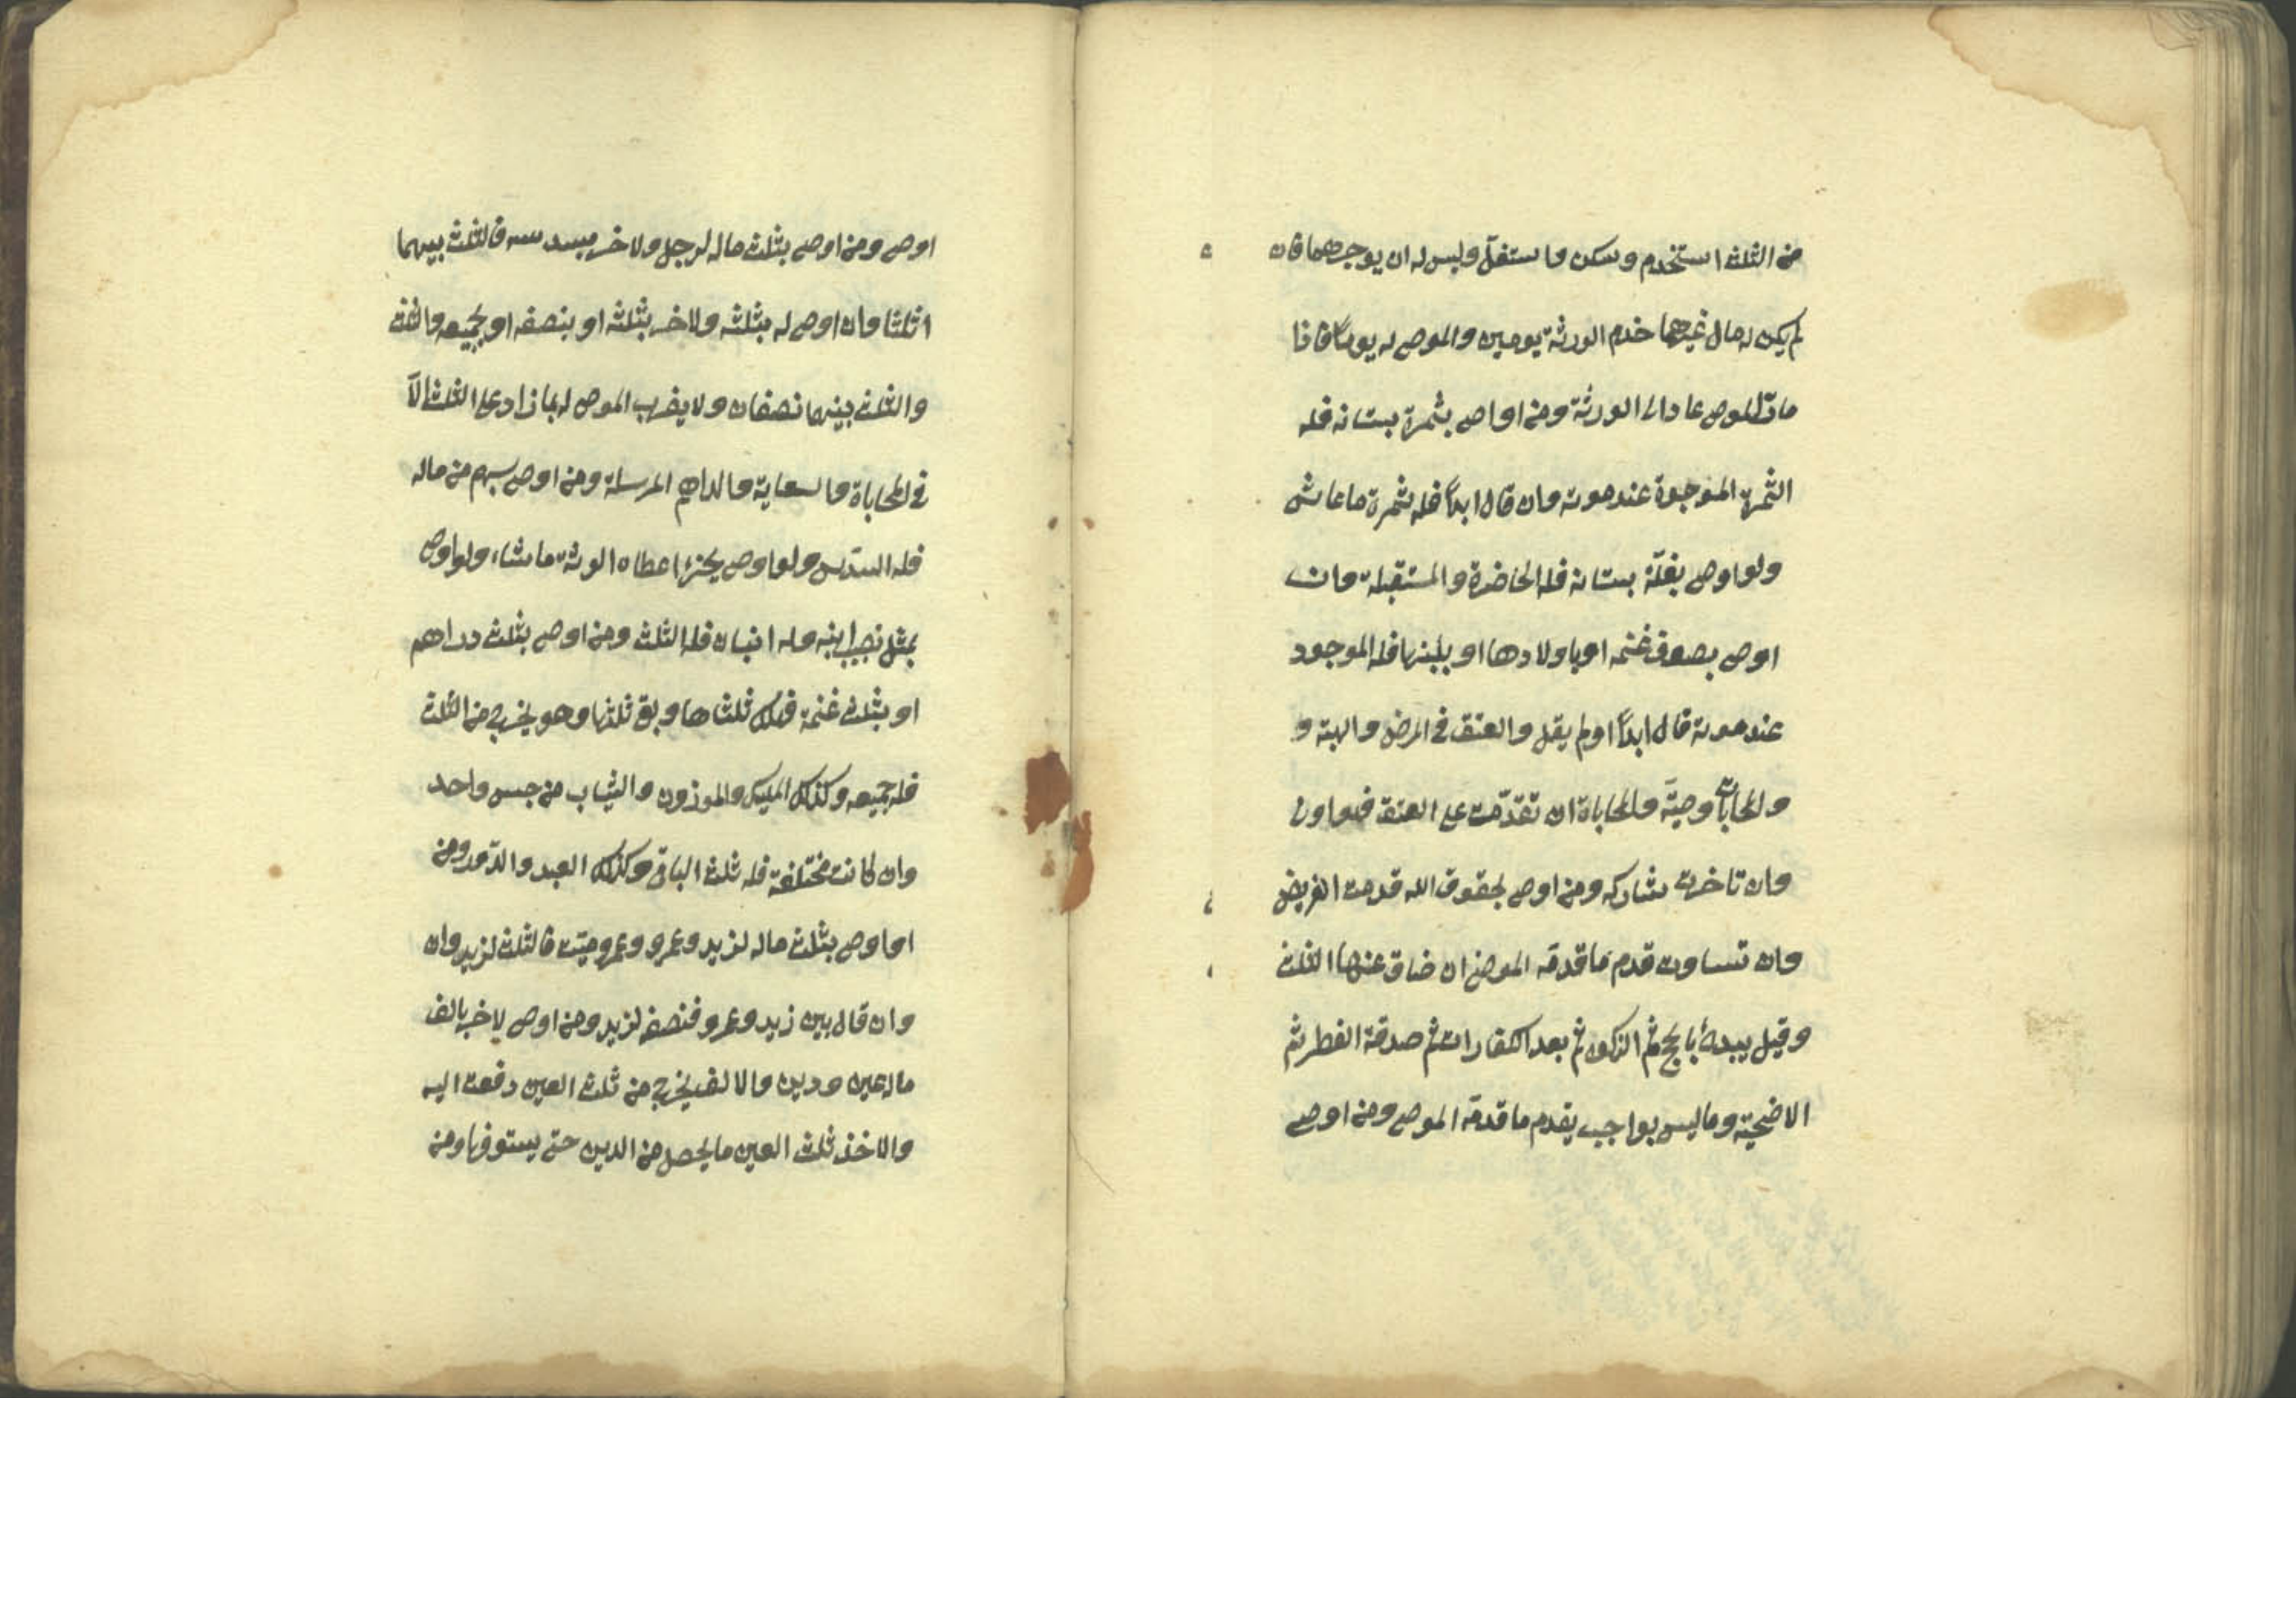 من الثلث استخدم وسكن واستغل وليس له ان يوجرهما فان
لم يكن له مال غيرهما خدم الورثة يومين والموصى له يوماً فاذا
مات الموصى عاد الى الورثة ومن اواصى بثمرة بستانه فله
الثمرة الموجودة عند موته وان قال ابداً فله ثمرة ما عاش
ولو اوصى بغلّة بستانه فله الحاضرة والمستقبلة وان
اوصى بصوف غنمه او باولادها او بلبنها فله الموجود
عند موته قال ابداً او لم يقل والعتق في المرض والهبة و
والمحاباة وصيّة والمحاباة ان تقدّمت على العتق فهو اولى
وان تاخرت شاركه ومن اوصى بحقوق الله قدمت الفريض
وان تساوت قدم ما قدمه الموصى ان ضاق عنها الثلث
وقيل يبدأ بالحج ثم الزكوة ثم بعد الكفارات ثم صدقة الفطر ثم
الاضحية وما ليس بواجب يقدم ما قدمه الموصى ومن اوصى
اوصى ومن اوصى بثلث ماله لرجل ولاخر بسدسه فالثلث بينهما
اثلثا وان اوصى له بثلثه ولاخر بثلثه او بنصفه او بجميعه والثلث
والثلث بينهما نصفان ولا يضرب الموصى له بما زاد على الثلث الّا
في المحاباة والسعاية والداهم المرسلة ومن اوصى بسهم من ماله
فله السدّس ولو اوصى بجزء اعطاه الورثة ما شاء، ولو اوصى
بمثل نصيب ابنه وله ابنان فله الثلث ومن اوصى بثلث دراهم
او بثلث غنمه فهلك ثلثاها وبقى ثلثها وهو يخرج من الثلث
فله جميعه وكذلك المكيل والموزون والثياب من جنس واحد
وان كانت مختلفة فله ثلث الباقى وكذلك العبد والدّور ومن
اواوصى بثلث ماله لزيد وعمرو وعمرو ميّت فالثلث لزيد وان
وان قال بين زيد وعمرو فنصفه لزيد ومن اوصى لاخر بالف
ماله عين ودين والالف يخرج من ثلث العين دفعت اليه
والا اخذ ثلث العين ما يحصل من الدين حتى يستوفيها ومن